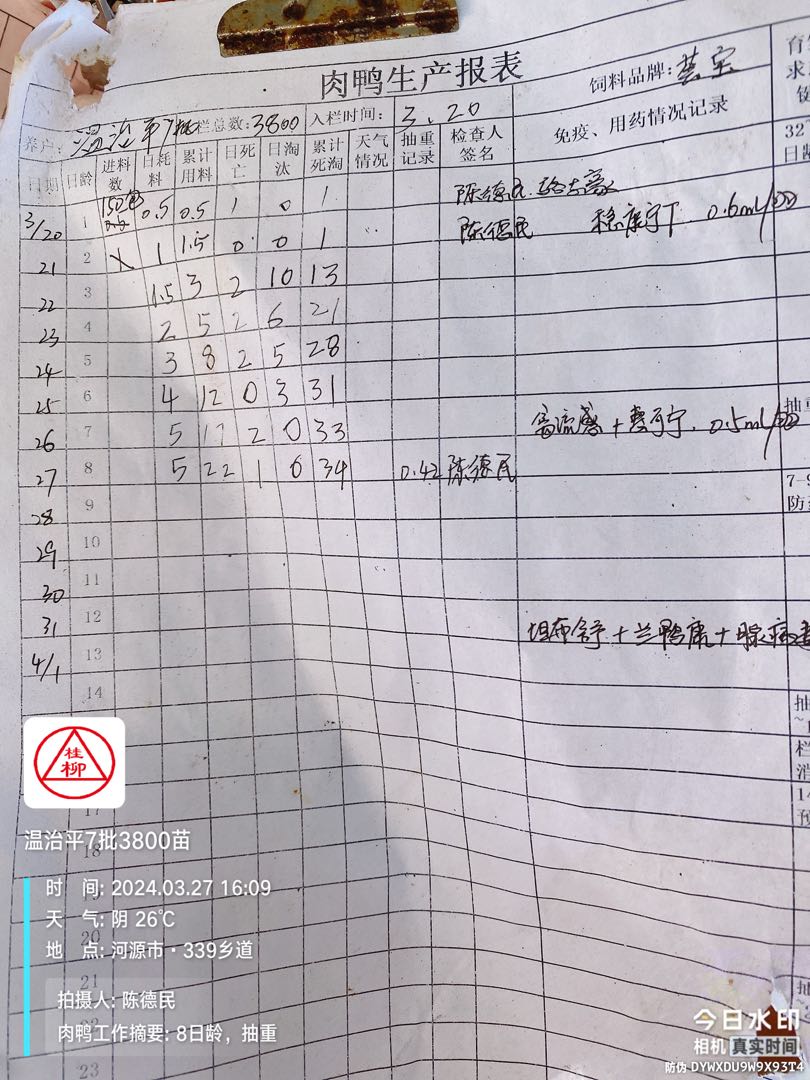 肉鸭生产报表
饲料品牌:
养户: 温治平7批 栏总数:3800 入栏时间: 3.20
免疫、用药情况记录
日期 日龄 进料数 日耗料 累计用料 日死亡 日淘汰 累计死淘 天气情况 抽重记录 检查人签名
32
日龄
3/20 1 150包 0.5 0.5 1 0 1 陈德民
21 2 X 1 1.5 0 0 1 陈德民 0.6ml/
22 3 1.5 3 2 10 13
23 4 2 5 2 6 21
24 5 3 8 2 5 28
25 6 4 12 0 3 31
26 7 5 17 2 0 33 禽流感+ 0.5ml/
27 8 5 22 1 0 34 0.42 陈德民
28 9
29 10
30 11
31 12
4/1 13
14
桂柳
17
温治平7批3800苗
18
时 间: 2024.03.27 16:09
天 气: 阴 26℃
20
地 点: 河源市·339乡道
21
拍摄人: 陈德民
肉鸭工作摘要: 8日龄，抽重
23
今日水印
相机 真实时间
防伪 DYWXDU9W9X93T4